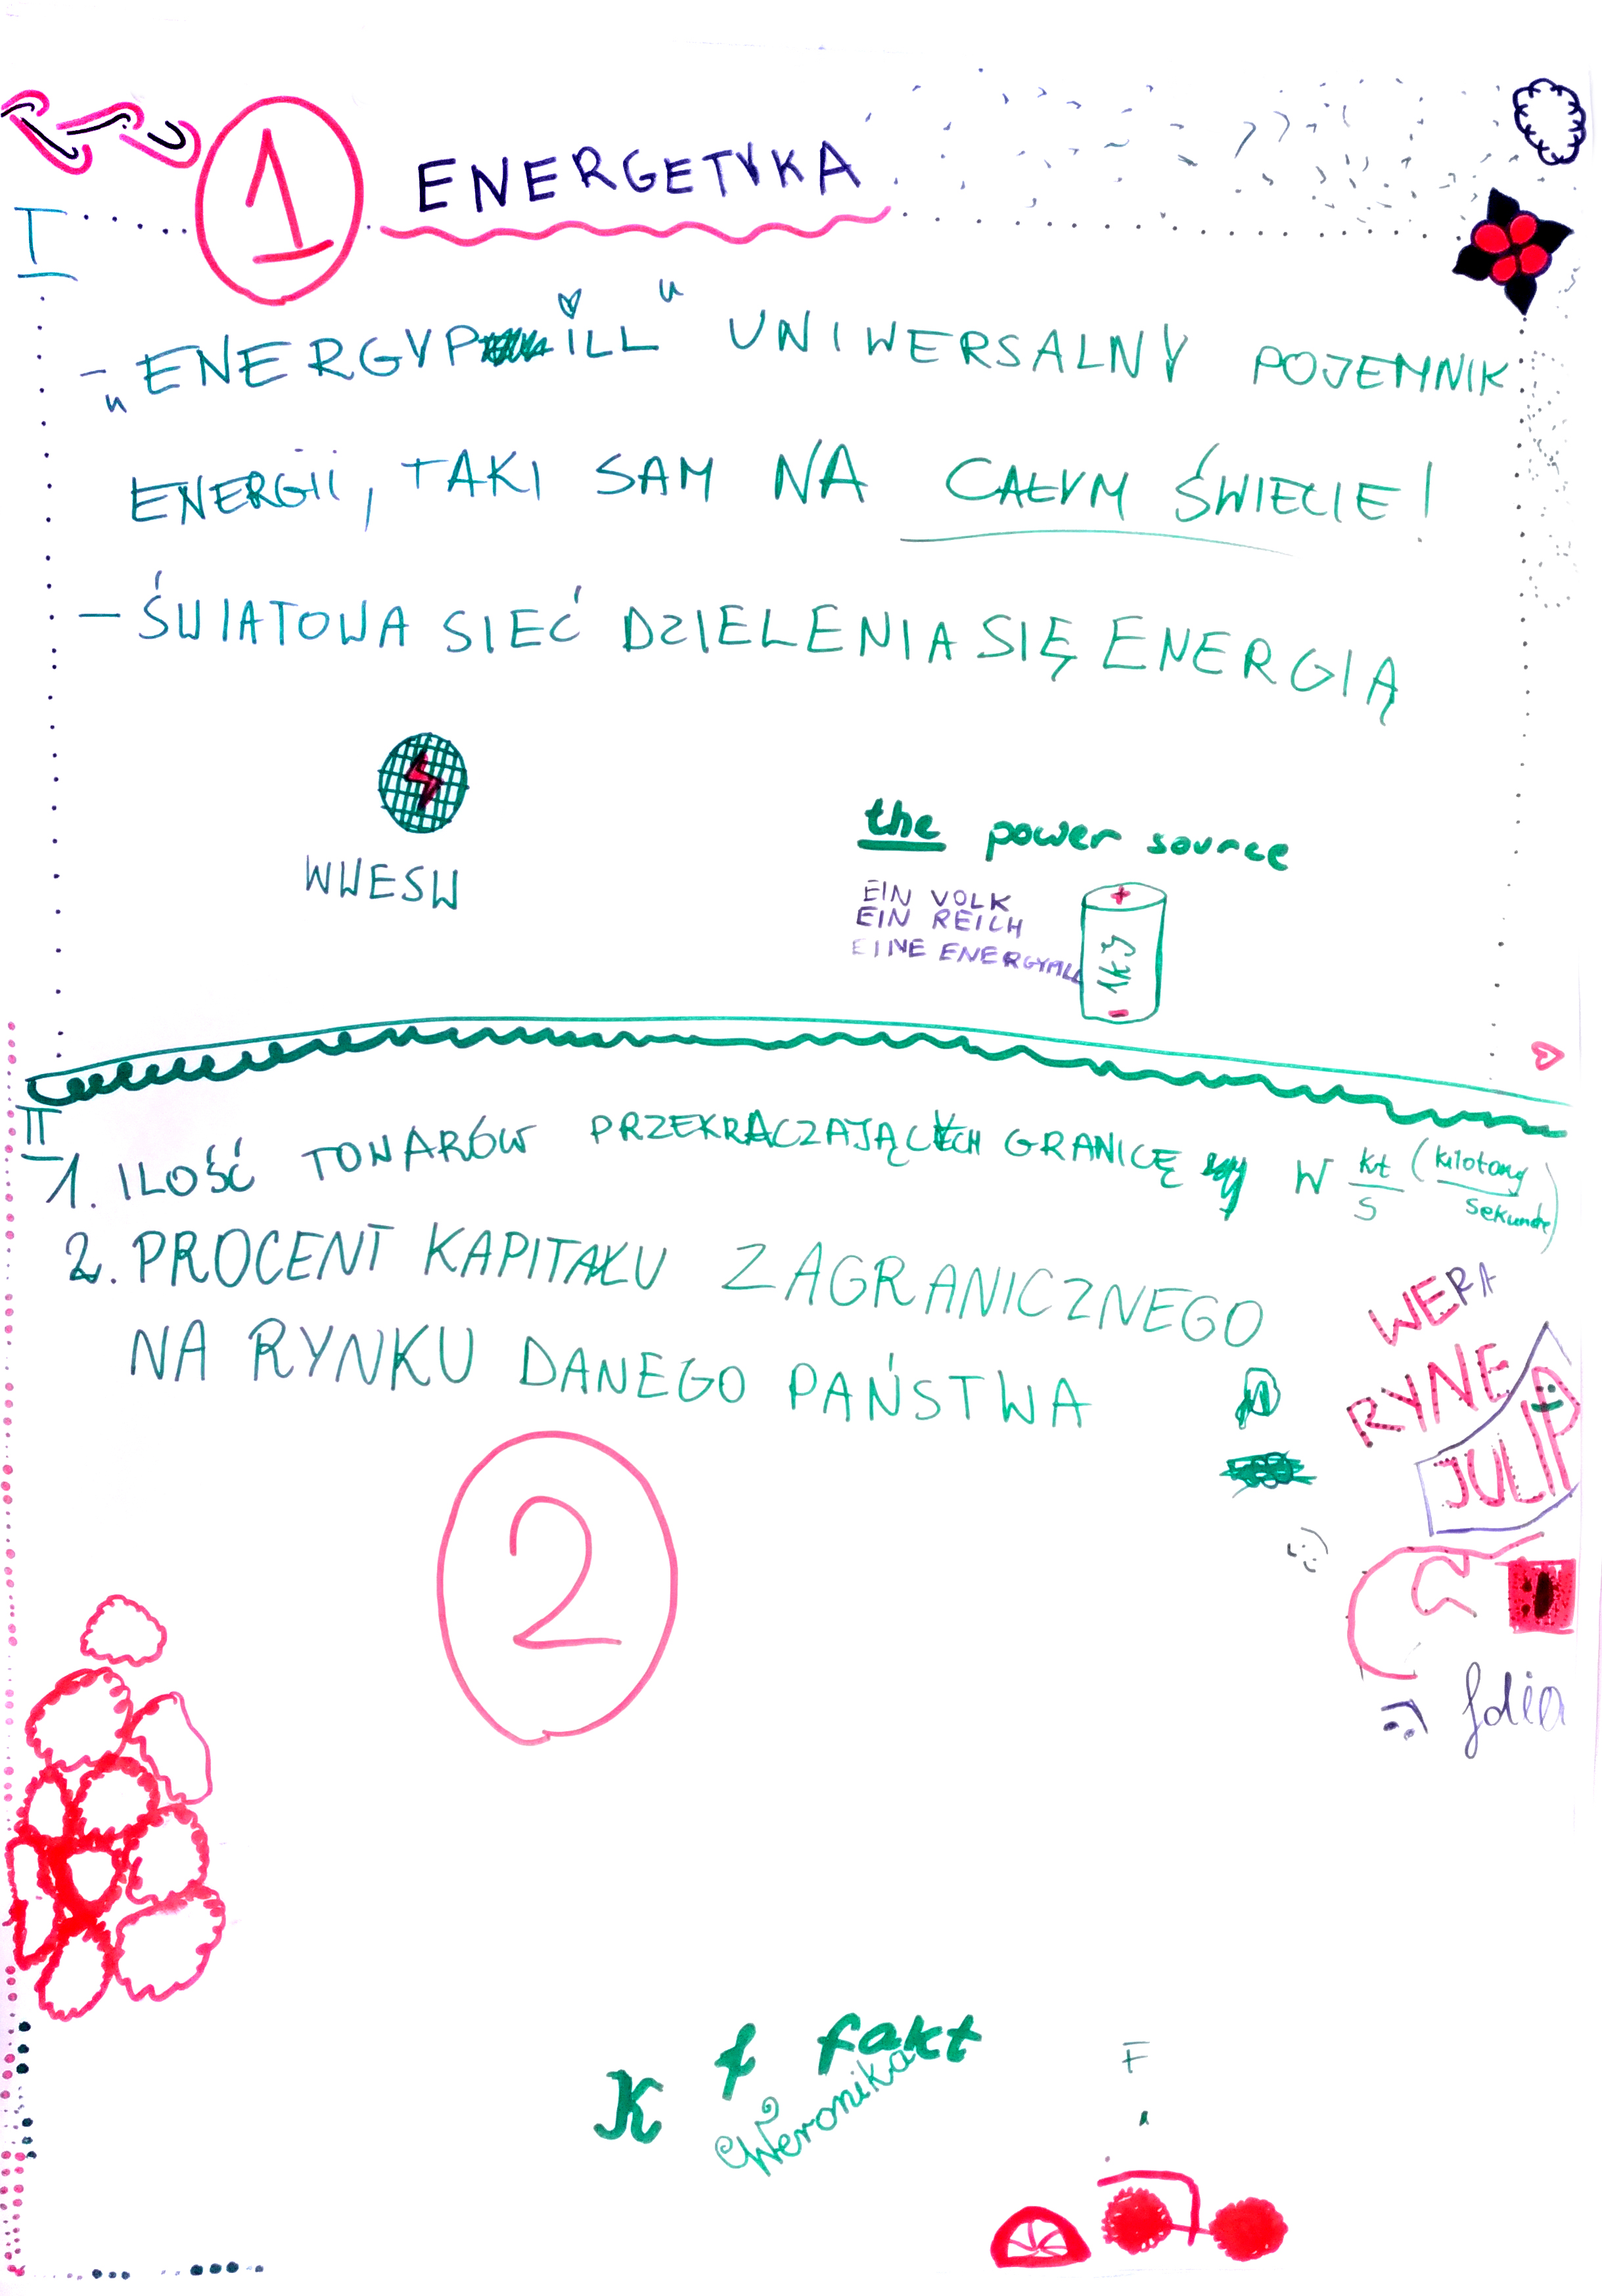 1 ENERGETYKA
I
- „ENERGYPILL" UNIWERSALNY POJEMNIK
ENERGII, TAKI SAM NA CAŁYM ŚWIECIE!
- ŚWIATOWA SIEĆ DZIELENIA SIĘ ENERGIĄ
WWESW
the power source
EIN VOLK
EIN REICH
EINE ENERGYPILL
+
1kJ
-
II
1. ILOŚĆ TOWARÓW PRZEKRACZAJĄCYCH GRANICĘ W kt/s (kilotony/sekundę)
2. PROCENT KAPITAŁU ZAGRANICZNEGO
NA RYNKU DANEGO PAŃSTWA
WERA
RYNE
JULIA
2
folia
K f fakt
Weronika
F